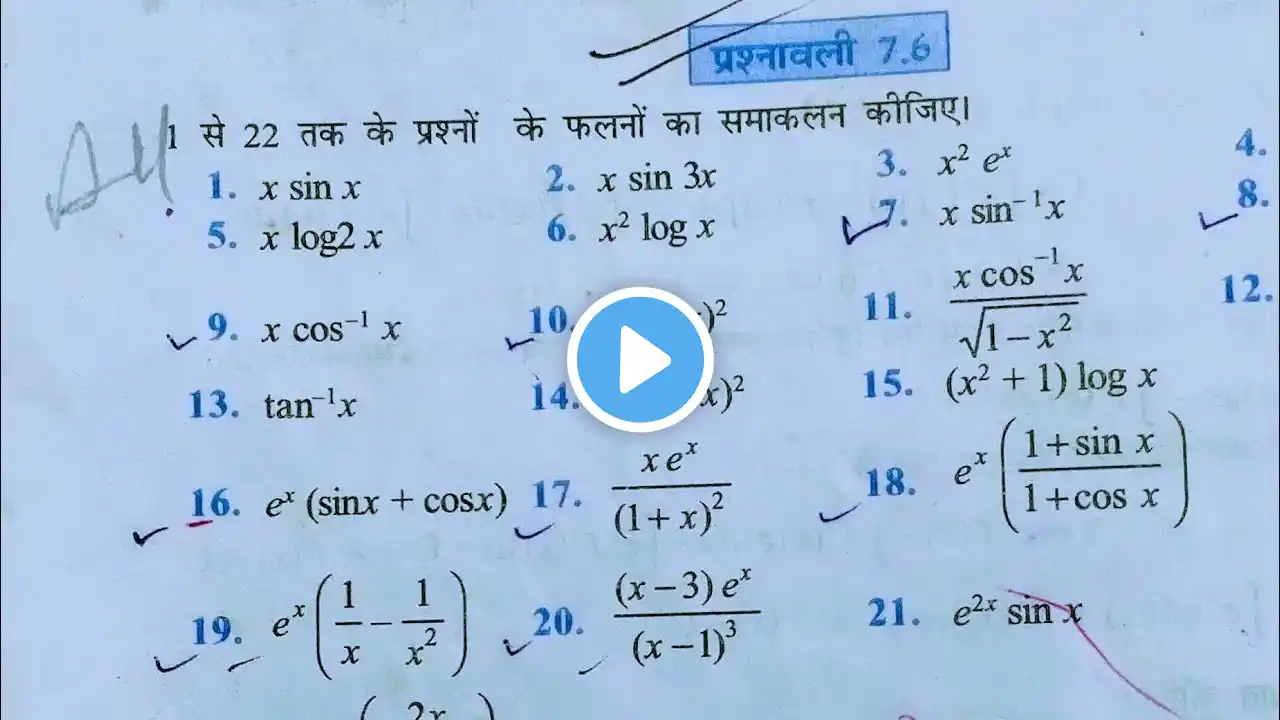 प्रश्नावली 7.6
All
1 से 22 तक के प्रश्नों के फलनों का समाकलन कीजिए।
1. x sin x 2. x sin 3x 3. x² eˣ 4.
5. x log2 x 6. x² log x 7. x sin⁻¹x 8.
9. x cos⁻¹ x 10. )² 11. x cos⁻¹ x / √(1 − x²) 12.
13. tan⁻¹x 14. x)² 15. (x² + 1) log x
16. eˣ (sinx + cosx) 17. x eˣ / (1 + x)² 18. eˣ ((1+sin x) / (1+cos x))
19. eˣ (1/x − 1/x²) 20. (x − 3) eˣ / (x − 1)³ 21. e²ˣ sin x
( 2x )